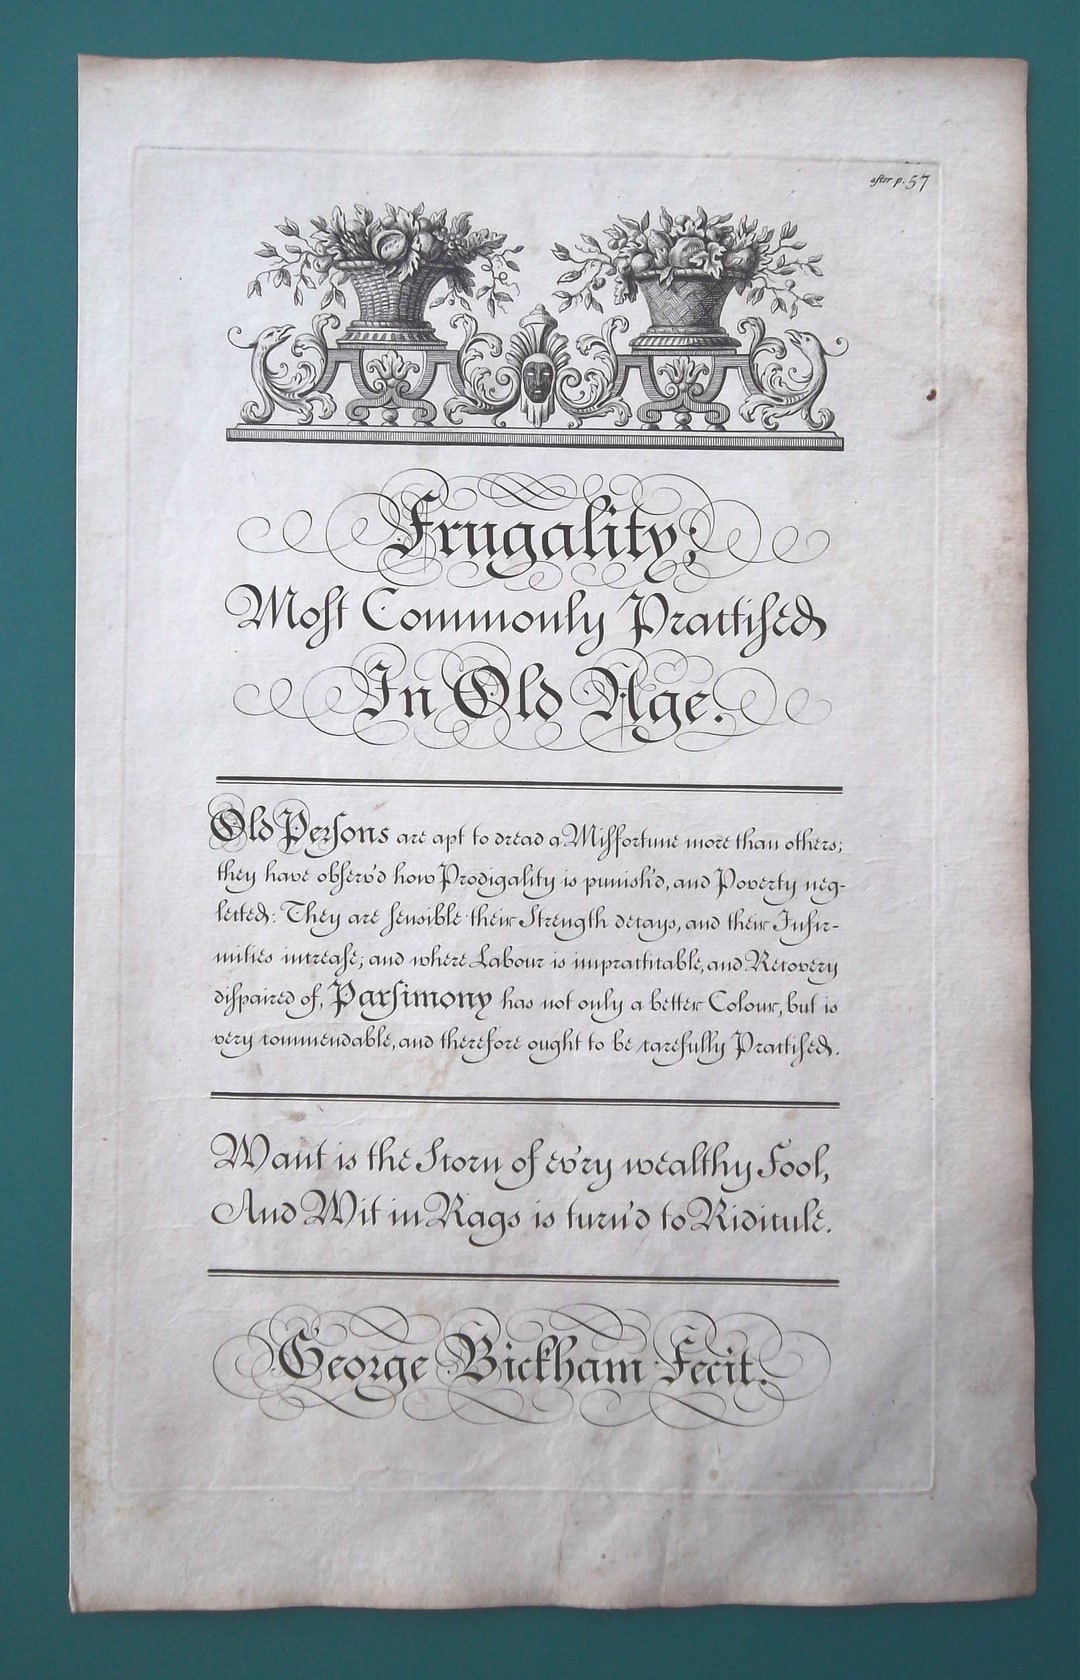 after p. 57
Frugality;
Most Commonly Practised
In Old Age.
Old Persons are apt to dread a Misfortune more than others;
they have observ'd how Prodigality is punish'd, and Poverty neg-
lected: They are sensible their Strength decays, and their Infir-
mities increase; and where Labour is impracticable, and Recovery
dispaired of, Parsimony has not only a better Colour, but is
very commendable, and therefore ought to be carefully Practised.
Want is the Scorn of ev'ry wealthy Fool,
And Wit in Rags is turn'd to Ridicule.
George Bickham Fecit.